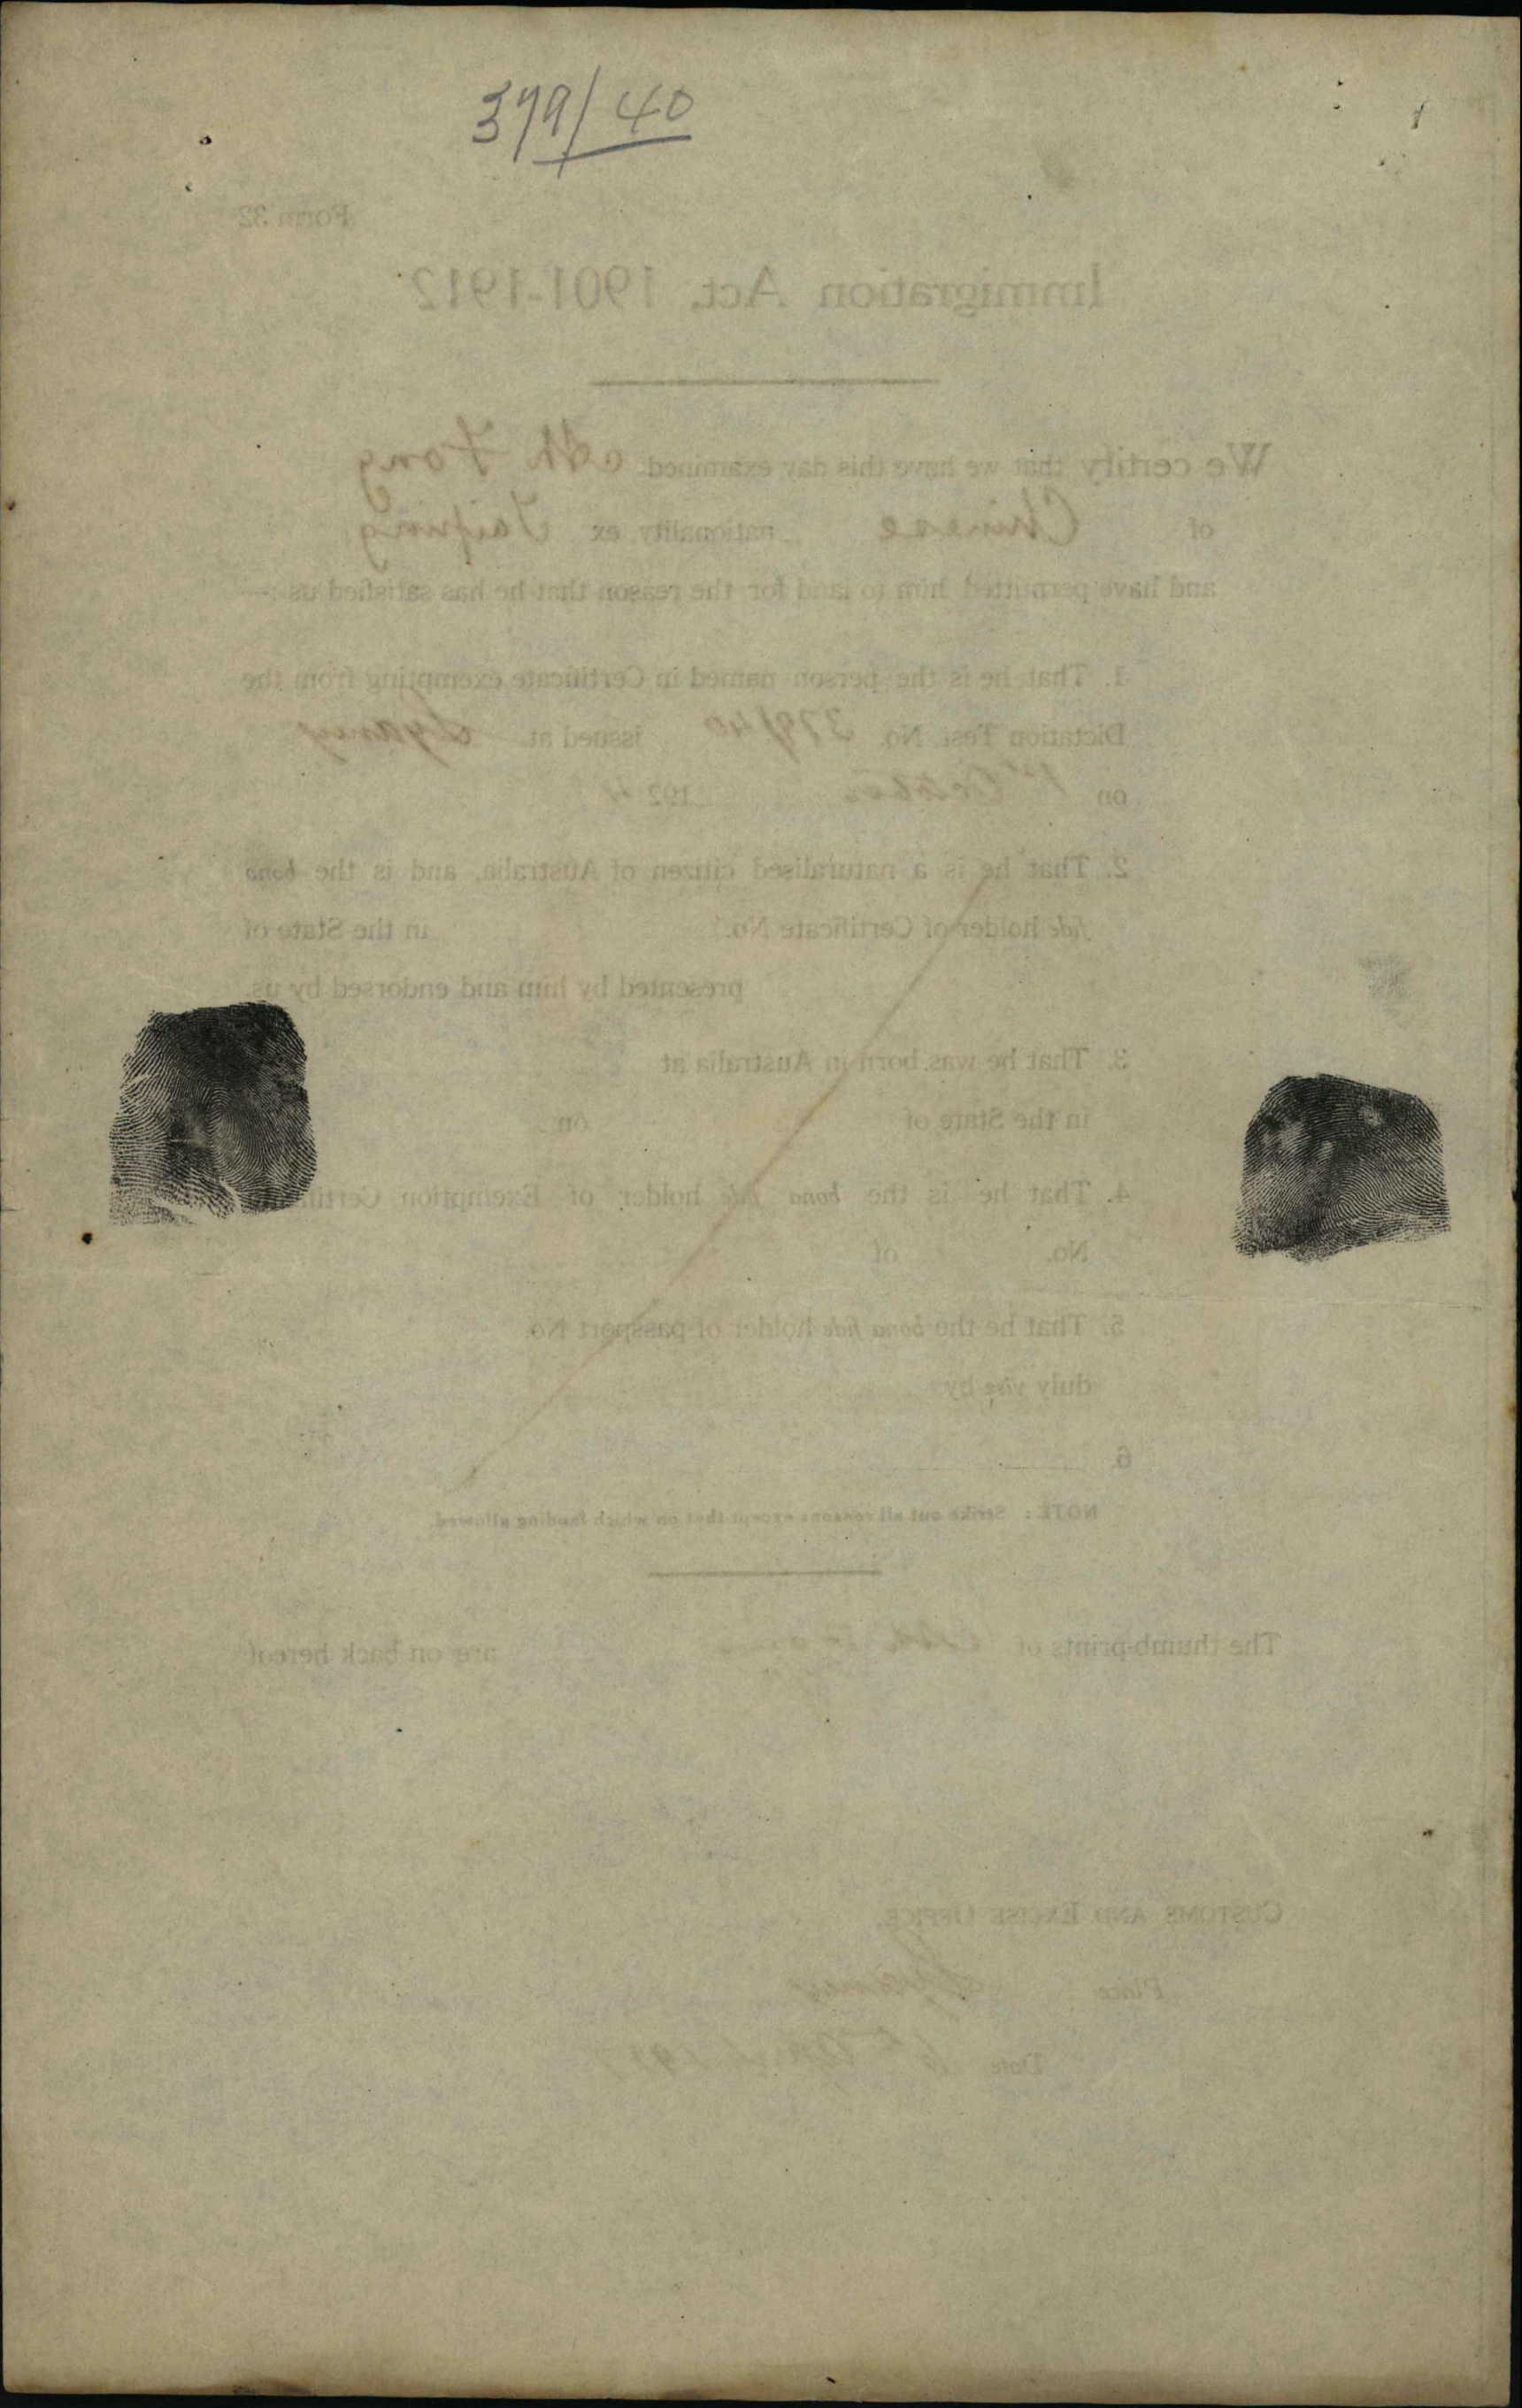 379/40
Form 32
Immigration Act. 1901-1912
We certify that we have this day examined Ah Fong
of Chinese nationality ex Taiping
and have permitted him to land for the reason that he has satisfied us:—
1. That he is the person named in Certificate exempting from the
Dictation Test No. 379/40 issued at Sydney
on 1st October 192
2. That he is a naturalised citizen of Australia, and is the bona
fide holder of Certificate No. in the State of
presented by him and endorsed by us.
3. That he was born in Australia at
in the State of on
4. That he is the bona fide holder of Exemption Certificate
No. of
5. That he the bona fide holder of passport No.
duly vise by
6
NOTE: Strike out all reasons except that on which landing allowed.
The thumb-prints of Ah Fong are on back hereof
CUSTOMS AND EXCISE OFFICE,
Place Sydney
Date